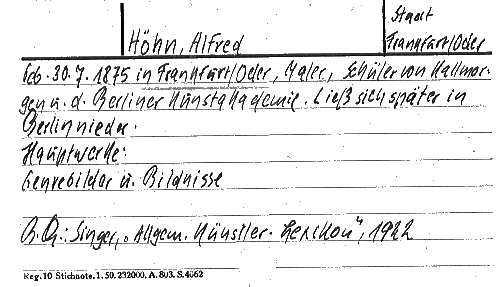 Stadt
Höhn, Alfred
Frankfurt/Oder
Geb. 30.7.1875 in Frankfurt/Oder, Maler, Schüler von Hallmor-
gen u. d. Berliner Kunstakademie. Ließ sich später in
Berlin nieder.
Hauptwerke:
Genrebilder u. Bildnisse
B.Q.: Singer, „Allgem. Künstler-Lexikon", 1922
Reg. 10 Stichnote. 1. 50. 232000, A. 803. S. 4662